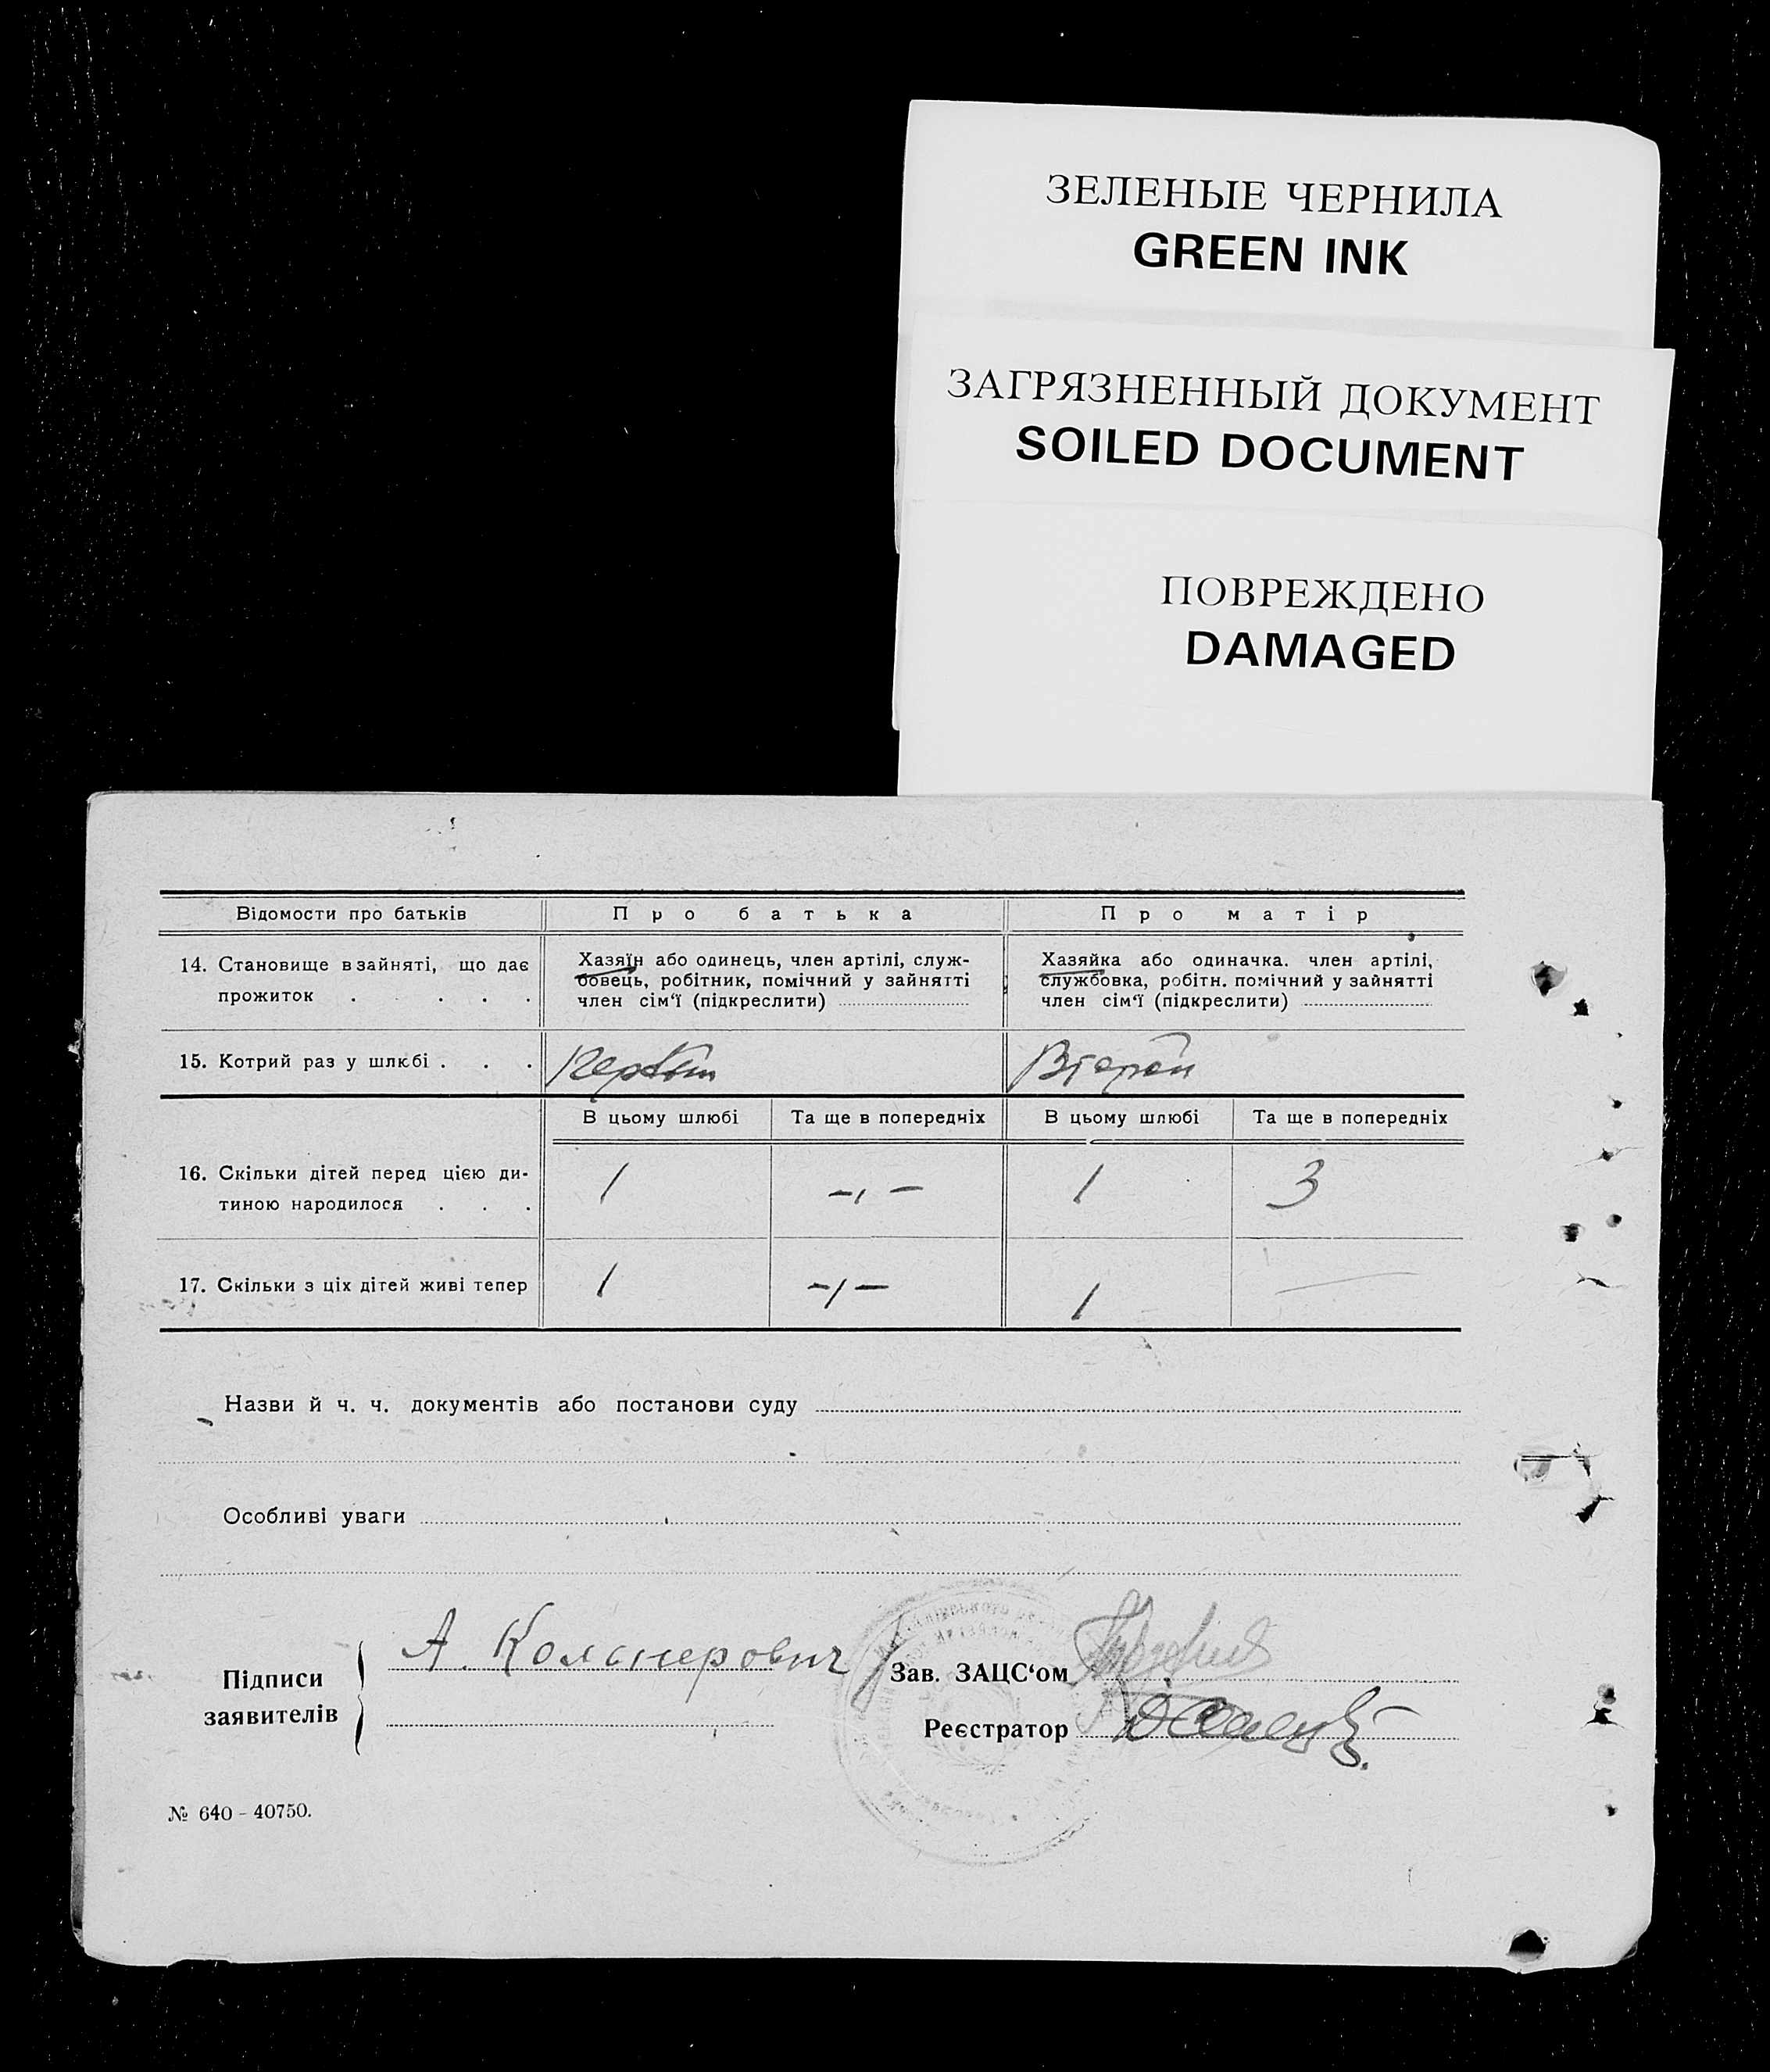 ЗЕЛЕНЫЕ ЧЕРНИЛА
GREEN INK
ЗАГРЯЗНЕННЫЙ ДОКУМЕНТ
SOILED DOCUMENT
ПОВРЕЖДЕНО
DAMAGED
Відомости про батьків Про батька Про матір
14. Становище в зайняті, що дає прожиток . . . . .
Хазяїн або одинець, член артілі, служ-
бовець, робітник, помічний у зайнятті
член сім'ї (підкреслити)
Хазяйка або одиначка. член артілі,
службовка, робітн. помічний у зайнятті
член сім'ї (підкреслити)
15. Котрий раз у шлюбі . . . Первый Второй
В цьому шлюбі Та ще в попередніх В цьому шлюбі Та ще в попередніх
16. Скільки дітей перед цією ди-
тиною народилося . . . 1 -,- 1 3
17. Скільки з ціх дітей живі тепер 1 -,- 1 —
Назви й ч. ч. документів або постанови суду
Особливі уваги
Підписи
заявителів
А.
Зав. ЗАЦС'ом
Реєстратор
№ 640 - 40750.